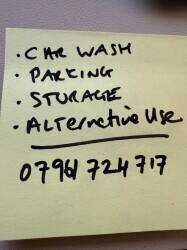 · CAR WASH
· PARKING
· STORAGE
· ALTERNATIVE USE
07961 724 717